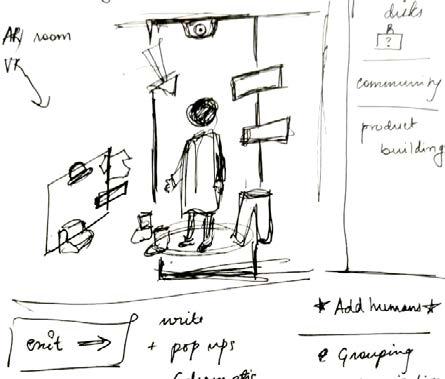 AR/ room
VR
disks
?
community
product
building
exit →
write
+ pop ups
★ Add humans ★
Grouping